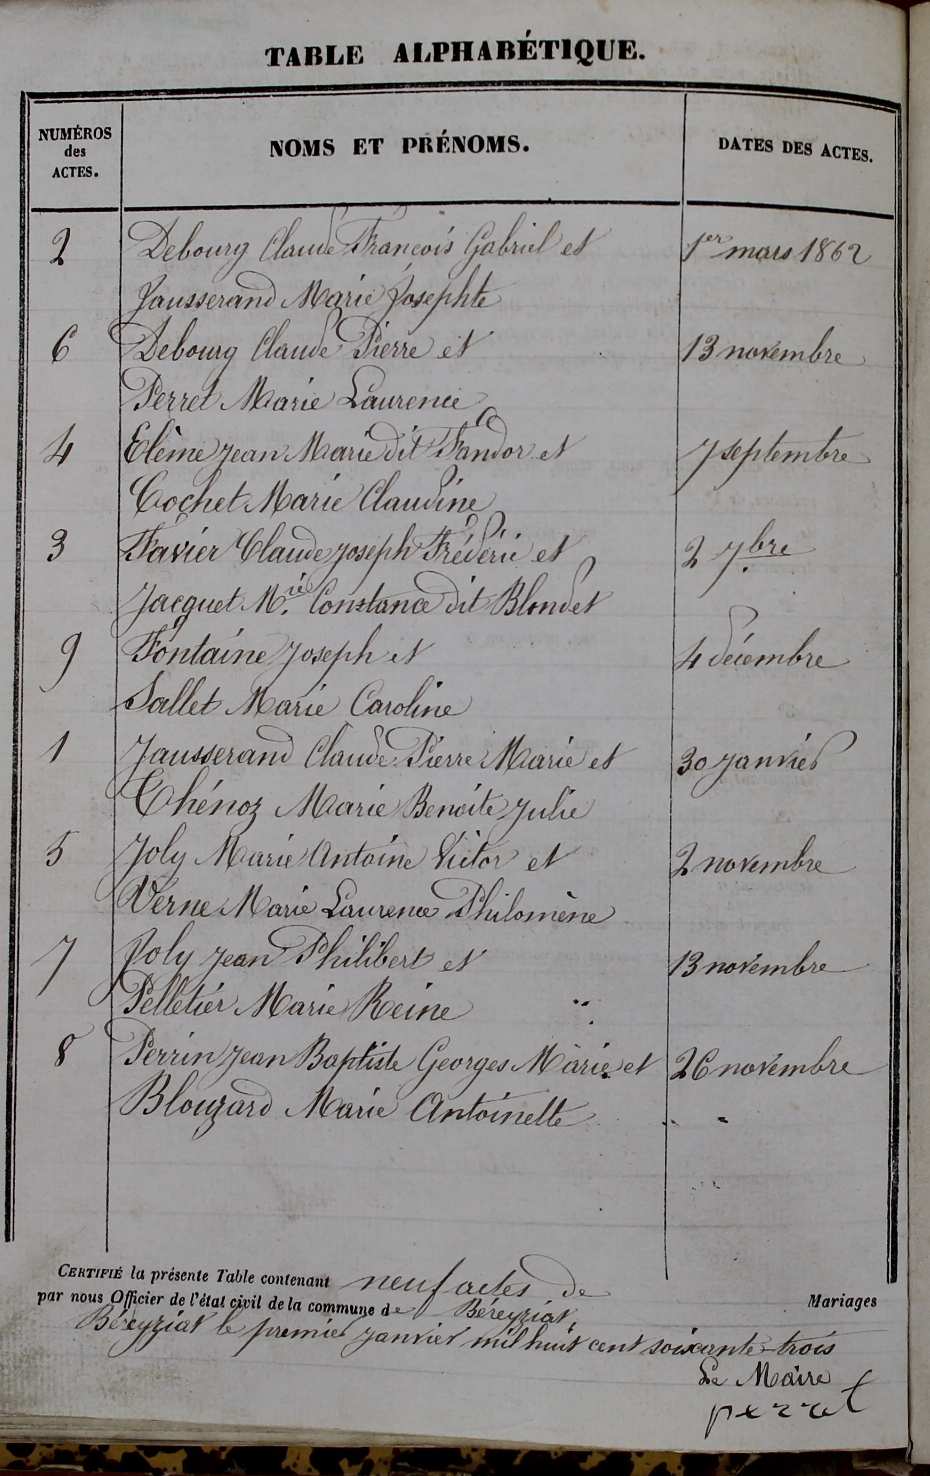 TABLE ALPHABÉTIQUE.
NUMÉROS
des
ACTES.
NOMS ET PRÉNOMS.
DATES DES ACTES.
2 Debourg Claude François Gabriel et 1er mars 1862
Jausserand Marie Josephte
6 Debourg Claude Pierre et 13 novembre
Perret Marie Laurence
4 Elème Jean Marie dit Fandor et 7 septembre
Cochet Marie Claudine
3 Favier Claude Joseph Frédéric et 2 7bre
Jacquet Mie Constance dit Blondet
9 Fontaine Joseph et 4 décembre
Sallet Marie Caroline
1 Jausserand Claude Pierre Marie et 30 Janvier
Thénoz Marie Benoite Julie
5 Joly Marie Antoine Victor et 2 novembre
Verne Marie Laurence Philomène
7 Joly Jean Philibert et 13 novembre
Pelletier Marie Reine
8 Perrin Jean Baptiste Georges Marie et 26 novembre
Blouzard Marie Antoinette
CERTIFIÉ la présente Table contenant neuf actes de
Mariages
par nous Officier de l'état civil de la commune de Béreyziat,
Béreyziat le premier Janvier mil huit cent soixante-trois
Le Maire
perret